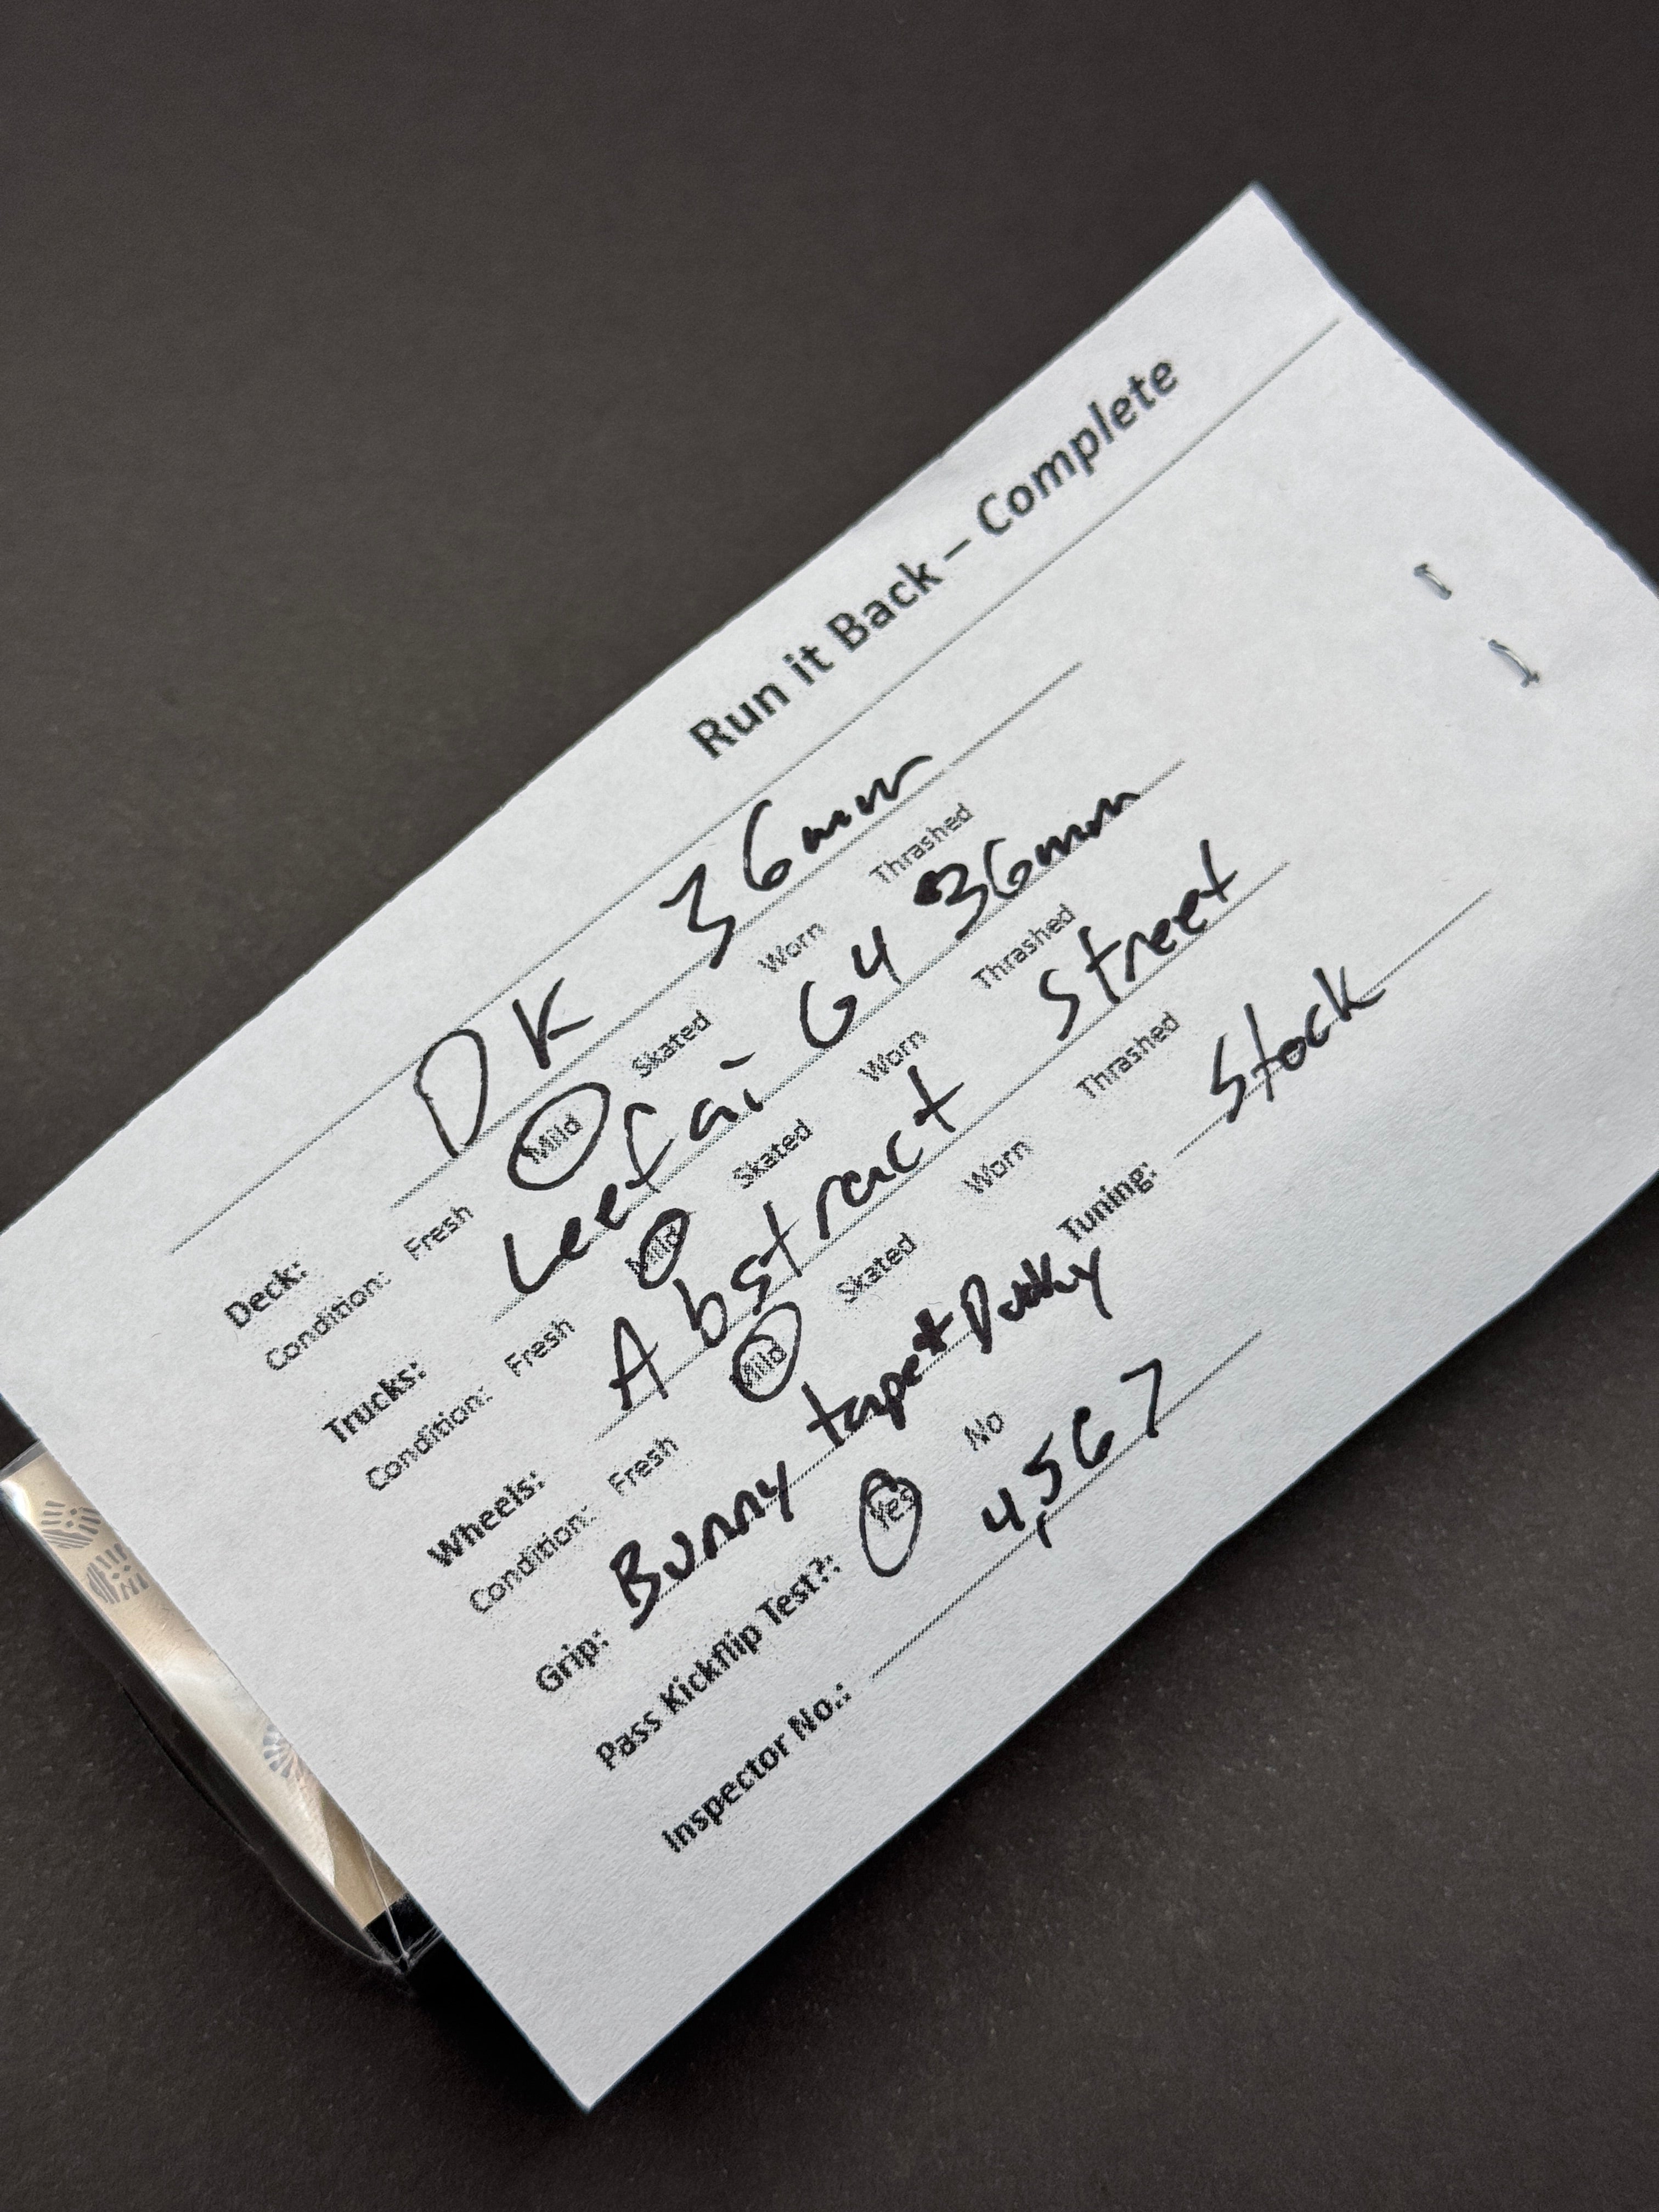 Run it Back – Complete
Deck: DK 36mm
Condition: Fresh Mild Skated Worn Thrashed
Trucks: Leefai G4 36mm
Condition: Fresh Mild Skated Worn Thrashed
Wheels: Abstract Street
Condition: Fresh Mild Skated Worn Thrashed
Grip: Bunny tape Tuning: Stock
Pass Kickflip Test?: Yes No
Inspector No.: 4,567